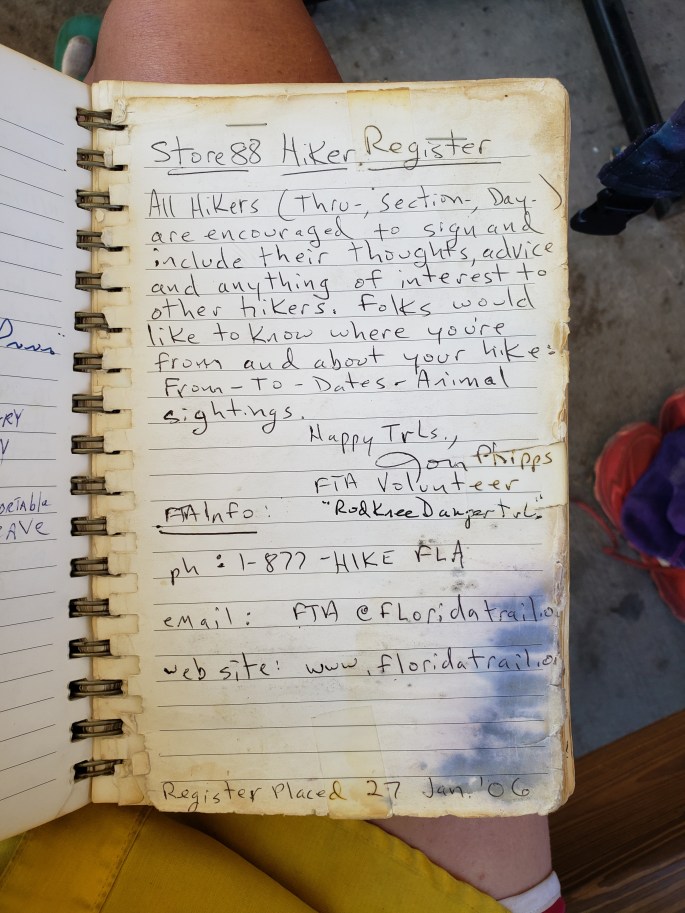 Store 88 Hiker Register
All Hikers (Thru-, Section-, Day-)
are encouraged to sign and
include their thoughts, advice
and anything of interest to
other hikers. Folks would
like to know where you're
from and about your hike:
From-To-Dates-Animal
sightings.
Happy Trls.,
Jon Phipps
FTA Volunteer
FTA Info: "RodKneeDangerTrl."
ph: 1-877-HIKE FLA
email: FTA@floridatrail.o
web site: www.floridatrail.or
Register Placed 27 Jan. '06